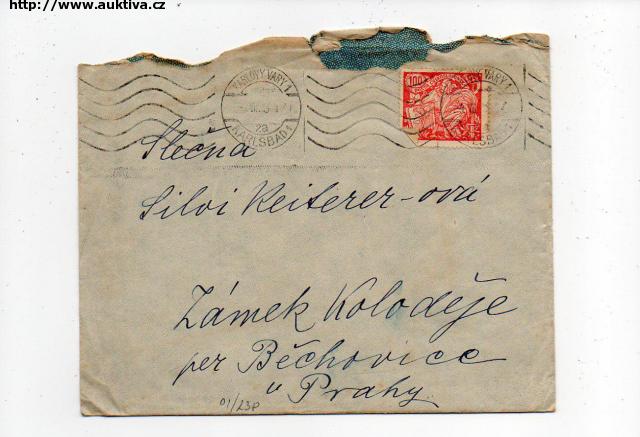 http://www.auktiva.cz
KARLOVY VARY 1
7a
KARLSBAD 1
100
Slečna
Silvi Reiterer-ová
Zámek Koloděje
per Běchovice
u Prahy
01/23P